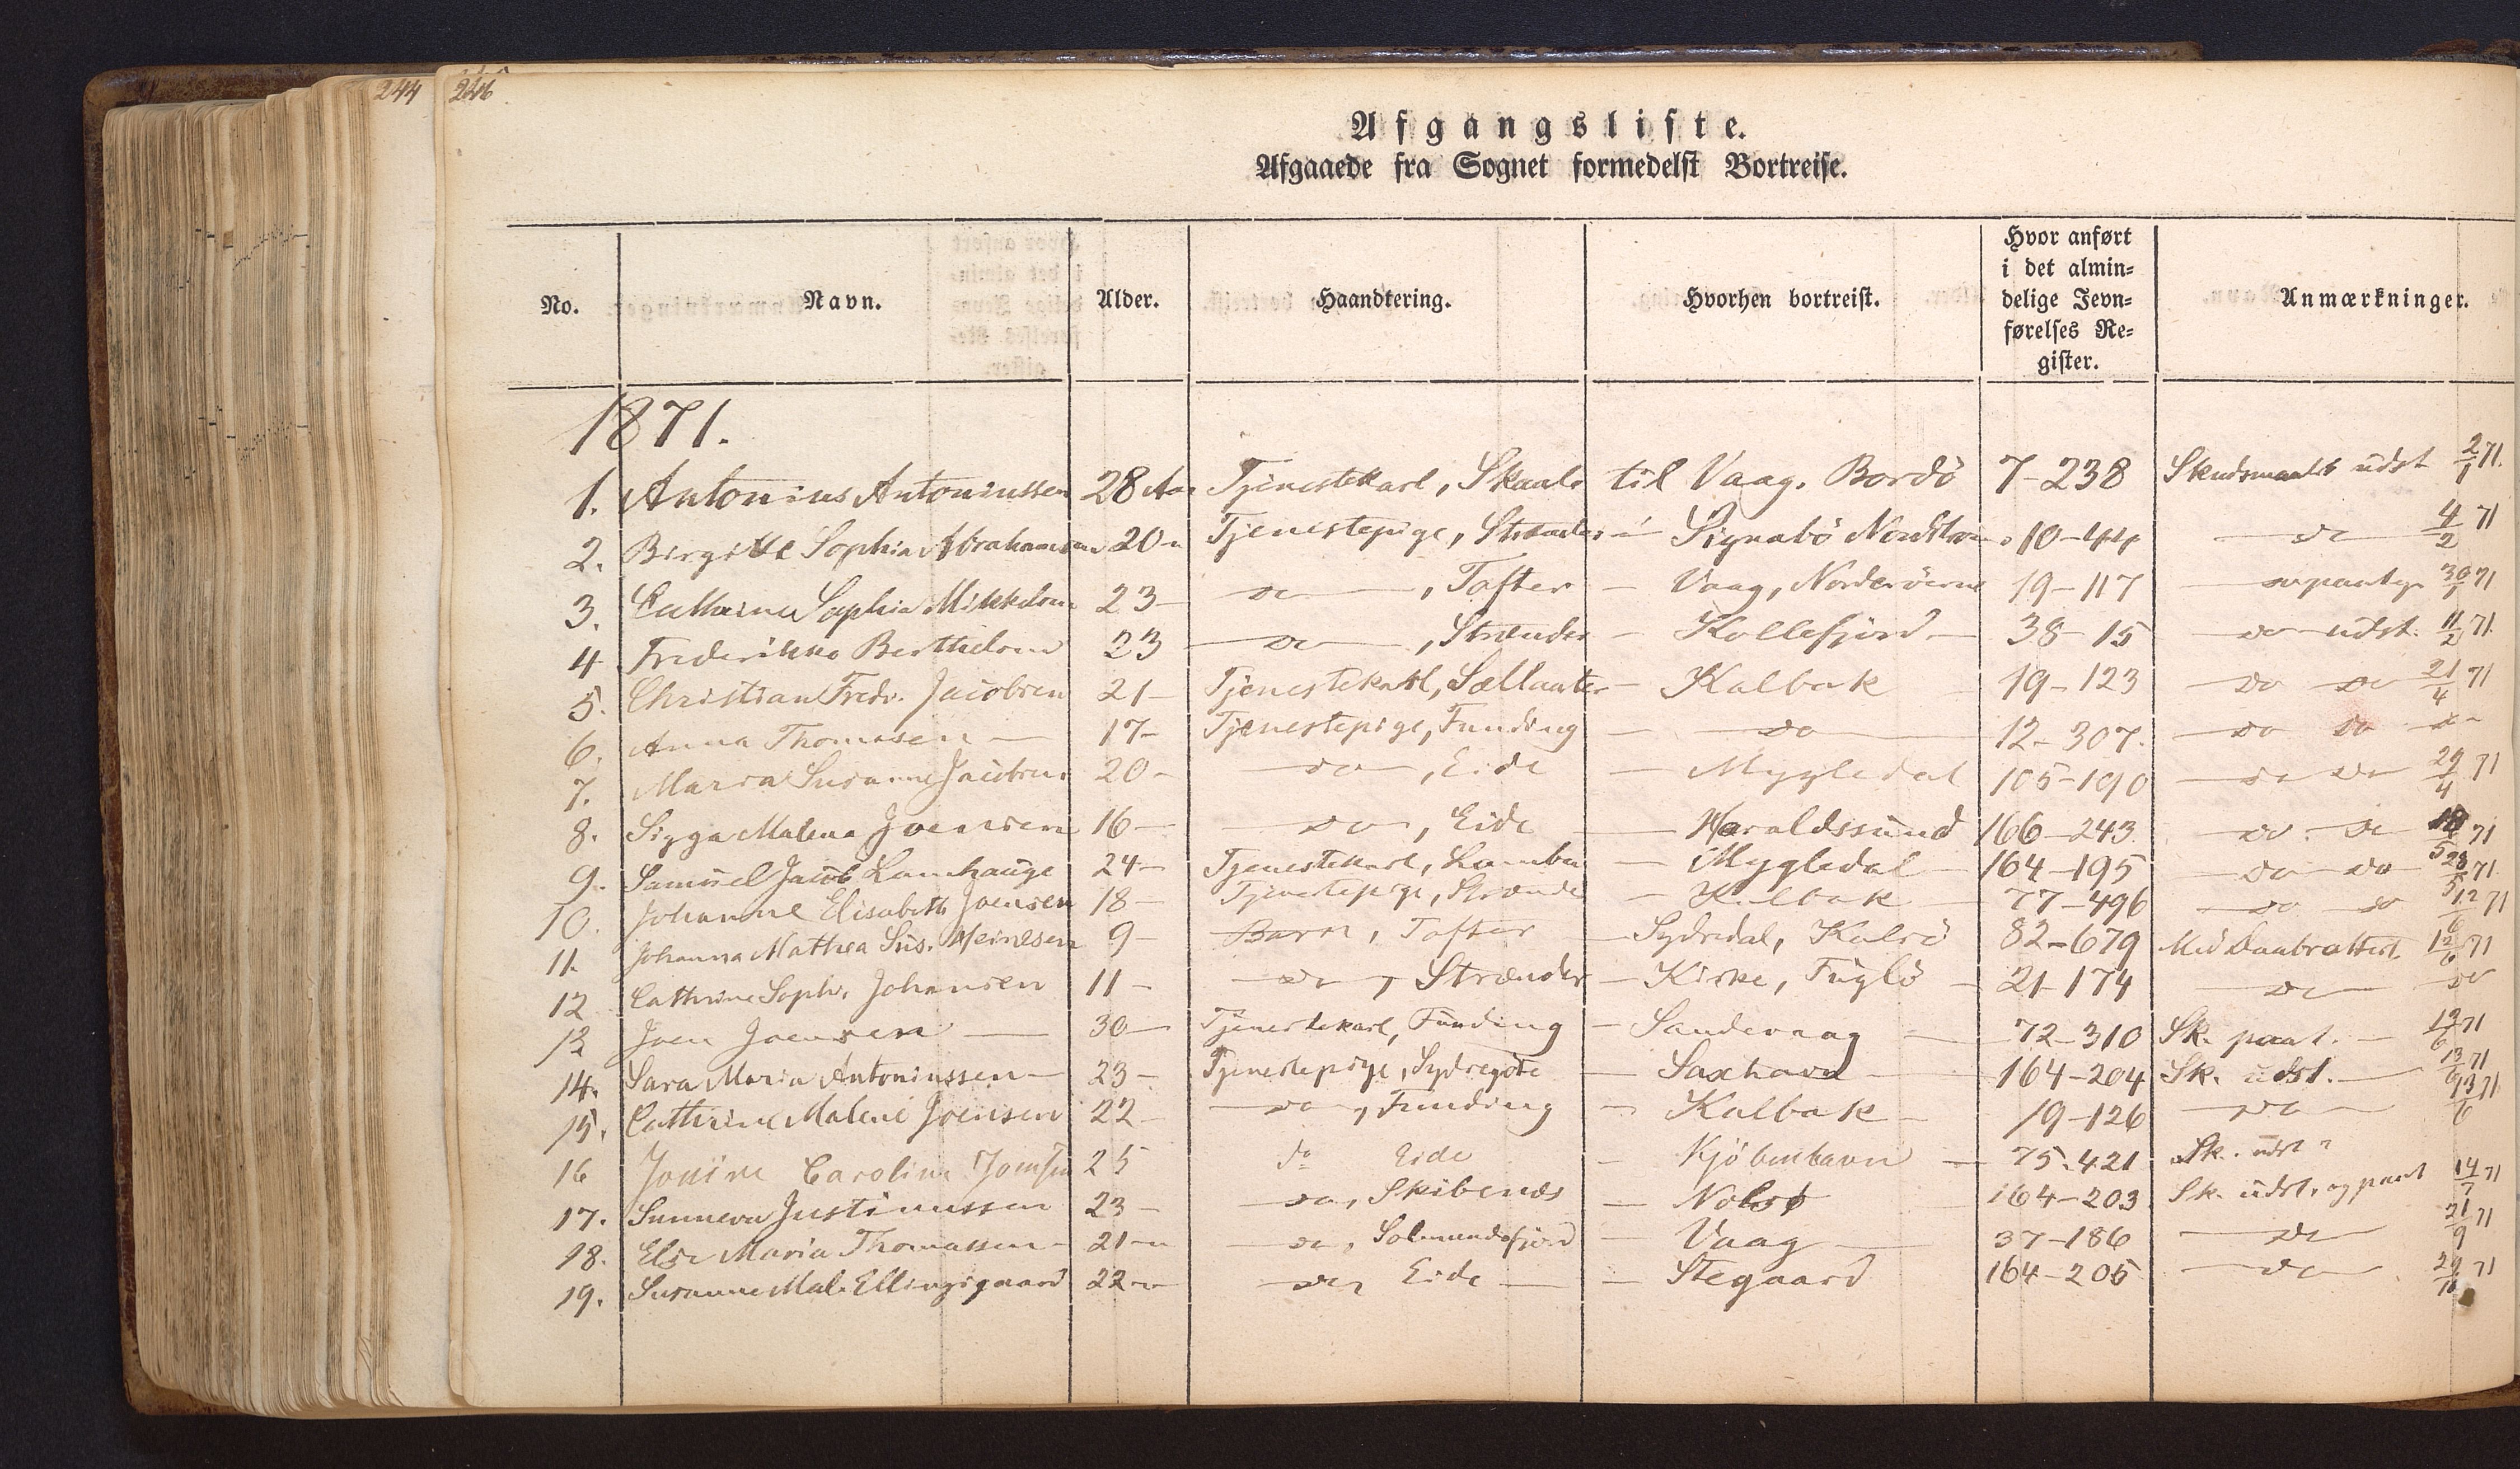 244 246
Afgangsliste.
Afgaaede fra Sognet formedelst Bortreise.
No. Navn. Alder. Haandtering. Hvorhen bortreist. Hvor anført i det almin= delige Jevn= førelses Re= gister. Anmærkninger.
1871.
1. Antonius Antoniussen 28 Aar Tjenestekarl, Skaale til Vaag. Bordö 7-238 Skudsmaals udst 2/1 71.
2. Birgitte Sophia Abrahamsen 20 - Tjenestepige, Strænder - Signabö 10-44 do 4/2 71
3. Cathrina Sophia Mikkelsen 23 - do, Tofter - Vaag, Norderöerne 19-117 do paateg 30/1 71
4. Frederikke Berthelsen 23 do, Strænder - Kollefjord - 38-15 do udst. 11/2 71.
5. Christian Fredr. Jacobsen 21 - Tjenestekarl, Sellanter - Kalbak 19-123 do do 21/4 71
6. Anna Thomasen - 17 - Tjenestepige, Funding - do 12-307. do do do
7. Maria Susanne Jacobsen 20 - do, Eide - Mygledal 105-190 do do 29/4 71
8. Sigga Malena Joensen 16 - do, Eide - Haraldssund 166-243 do do 18/5 71
9. Samuel Jacob Lamhauge 24 - Tjenestekarl, Lambe - Mygledal 164-195 do do 28/5 71.
10. Johanne Elisabeth Joensen 18 - Tjenestepige, Strænde - Kalbak 77-496 do do 12/6 71
11. Johanna Mathea Sus. Heinesen 9 - Barn, Tofter - Sydredal, Kalsö 82-679 Med Daabsattest. 12/6 71
12 Cathrine Soph. Johansen 11 - do, Strænder - Kirke, Fuglö - 21-174 do do
13 Joen Joensen - 30 - Tjenestekarl, Funding - Sandevaag - 72-310 Sk. paat. - 12/6 71
14. Sara Maria Antoniussen - 23 - Tjenestepige, Sydregöte - Saxhavn - 164-204 Sk. udst. - 13/6 71
15. Cathrine Malene Joensen 22 - do, Funding - Kalbak - 19-126 do 13/6 71
16 Jouine Caroline Joensen 25 do Eide - Kjöbenhavn - 75-421 Sk. udst "
17. Sunneva Justinussen 23 - do, Skibenæs - Nolsø 164-203 Sk. udst. og paat 14/7 71
18. Else Maria Thomassen - 21 - do, Solmundefjord - Vaag - 37-186 do 21/9 71
19. Susanne Mal. Ellingsgaard 22 - do, Eide - Stegaard 164-205 do 29/10 71